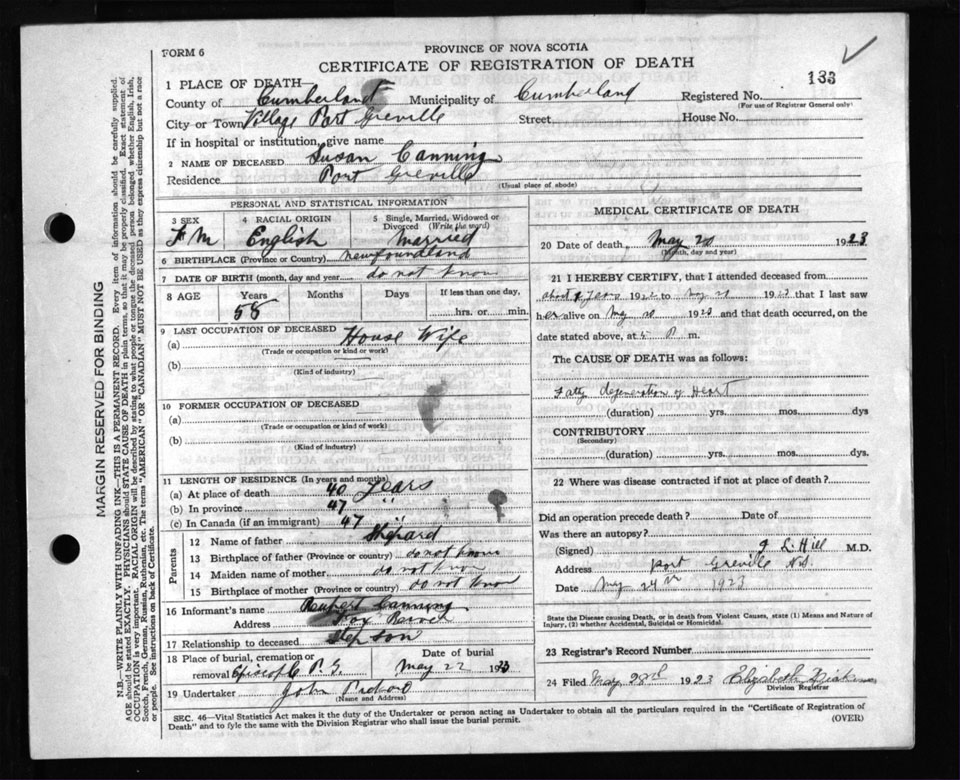 FORM 6
PROVINCE OF NOVA SCOTIA
CERTIFICATE OF REGISTRATION OF DEATH
133
1 PLACE OF DEATH—
County of Cumberland Municipality of Cumberland Registered No.
(For use of Registrar General only)
City or Town Village Port Greville Street House No.
If in hospital or institution, give name
2 NAME OF DECEASED Susan Canning
Residence Port Greville
(Usual place of abode)
PERSONAL AND STATISTICAL INFORMATION
3 SEX 4 RACIAL ORIGIN 5 Single, Married, Widowed or Divorced (Write the word)
F M English Married
6 BIRTHPLACE (Province or Country) Newfoundland
7 DATE OF BIRTH (month, day and year) do not know
8 AGE Years Months Days If less than one day,
58 hrs. or min.
9 LAST OCCUPATION OF DECEASED
(a) House Wife
(Trade or occupation or kind or work)
(b)
(Kind of industry)
10 FORMER OCCUPATION OF DECEASED
(a)
(Trade or occupation or kind of work)
(b)
(Kind of industry)
11 LENGTH OF RESIDENCE (In years and months)
(a) At place of death 40 years
(b) In province 47 "
(c) In Canada (if an immigrant) 47 "
Parents
12 Name of father Shepard
13 Birthplace of father (Province or country) do not know
14 Maiden name of mother do not know
15 Birthplace of mother (Province or country) do not know
16 Informant's name Rupert Canning
Address Fox River
17 Relationship to deceased Step Son
18 Place of burial, cremation or removal P. G. Date of burial May 22 1923
19 Undertaker John
(Name and Address)
MEDICAL CERTIFICATE OF DEATH
20 Date of death, May 20 1923
(Month, day and year)
21 I HEREBY CERTIFY, that I attended deceased from
about 192 to 1923 that I last saw
her alive on 1923 and that death occurred, on the
date stated above, at 5 P m.
The CAUSE OF DEATH was as follows:
Fatty degeneration of Heart
(duration) yrs. mos. dys
CONTRIBUTORY
(Secondary)
(duration) yrs. mos. dys.
22 Where was disease contracted if not at place of death?
Did an operation precede death? Date of
Was there an autopsy?
(Signed) Hill M.D.
Address Port Greville N.S.
Date May 24th 1923
State the Disease causing Death, or in death from Violent Causes, state (1) Means and Nature of Injury, (2) whether Accidental, Suicidal or Homicidal.
23 Registrar's Record Number
24 Filed May 28th 1923 Elizabeth
Division Registrar
SEC. 46—Vital Statistics Act makes it the duty of the Undertaker or person acting as Undertaker to obtain all the particulars required in the "Certificate of Registration of
Death" and to fyle the same with the Division Registrar who shall issue the burial permit.
(OVER)
MARGIN RESERVED FOR BINDING
N.B.—WRITE PLAINLY WITH UNFADING INK—THIS IS A PERMANENT RECORD. Every item of information should be carefully supplied.
AGE should be stated EXACTLY. PHYSICIANS should STATE CAUSE OF DEATH in plain terms, so that it may be properly classified. Exact statement of
OCCUPATION is very important. RACIAL ORIGIN will be described by stating to what people or tongue the deceased person belonged whether English, Irish,
Scotch, French, German, Russian, Ruthenian, etc. The terms "AMERICAN" OR "CANADIAN" MUST NOT BE USED as they express citizenship but not a race
or people. See instructions on back of Certificate.